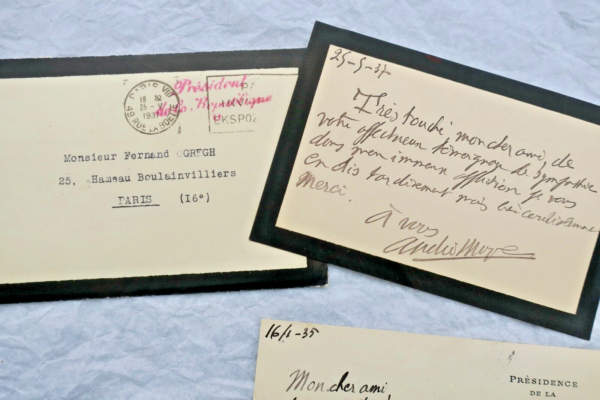 PARIS VIII
18 30
25 - V
193
49 RUE LA BOETIE
Président
de la République
Monsieur Fernand GREGH
25, Hameau Boulainvilliers
PARIS (16e)
25-5-37
Très touché, mon cher ami, de
votre affectueux témoignage de sympathie
dans mon immense affliction je vous
en dis tardivement mais bien cordialement
merci.
à vous
16/1-35
Mon cher ami
PRÉSIDENCE
DE LA